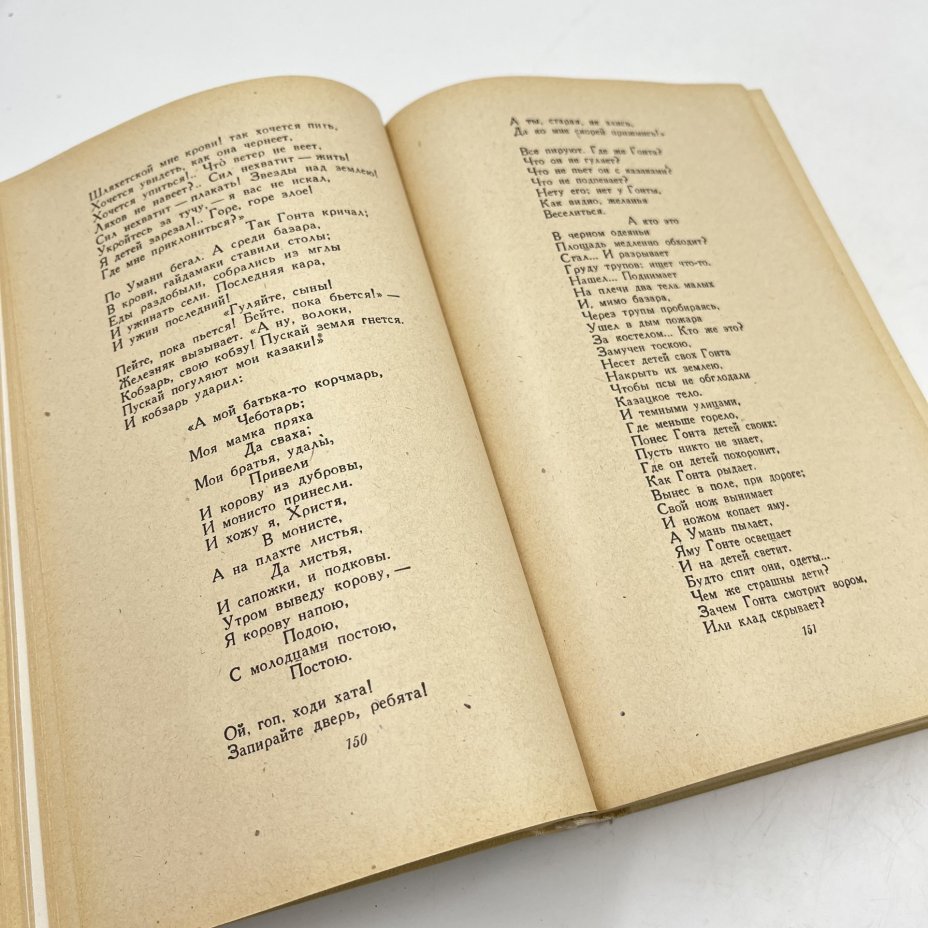 Шляхетской мне крови! так хочется пить,
Хочется увидеть, как она чернеет,
Хочется упиться!.. Что ветер не веет,
Ляхов не навеет?.. Сил нехватит — жить!
Сил нехватит — плакать! Звезды над землею!
Укройтесь за тучу, — я вас не искал,
Я детей зарезал!.. Горе, горе злое!
Где мне приклониться?»
Так Гонта кричал;
По Умани бегал. А среди базара,
В крови, гайдамаки ставили столы;
Еды раздобыли, собрались из мглы
И ужинать сели. Последняя кара,
И ужин последний!
«Гуляйте, сыны!
Пейте, пока пьется! Бейте, пока бьется!» —
Железняк вызывает. «А ну, волоки,
Кобзарь, свою кобзу! Пускай земля гнется.
Пускай погуляют мои казаки!»
И кобзарь ударил:
«А мой батька-то корчмарь,
Чеботарь;
Моя мамка пряха
Да сваха;
Мои братья, удалы,
Привели
И корову из дубровы,
И монисто принесли.
И хожу я, Христя,
В монисте,
А на плахте листья,
Да листья,
И сапожки, и подковы.
Утром выведу корову, —
Я корову напою,
Подою,
С молодцами постою,
Постою.
Ой, гоп, ходи хата!
Запирайте дверь, ребята!
150
А ты, старая, не кайсь,
Да ко мне скорей прижмись!»
Все пируют. Где же Гонта?
Что он не гуляет?
Что не пьет он с казаками?
Что не подпевает?
Нету его; нет у Гонты,
Как видно, желанья
Веселиться.
А кто это
В черном одеяньи
Площадь медленно обходит?
Стал... И разрывает
Груду трупов: ищет что-то.
Нашел... Поднимает
На плечи два тела малых
И, мимо базара,
Через трупы пробираясь,
Ушел в дым пожара
За костелом... Кто же это?
Замучен тоскою,
Несет детей своx Гонта
Накрыть их землею,
Чтобы псы не обглодали
Казацкое тело.
И темными улицами,
Где меньше горело,
Понес Гонта детей своих:
Пусть никто не знает,
Где он детей похоронит,
Как Гонта рыдает.
Вынес в поле, при дороге;
Свой нож вынимает
И ножом копает яму.
А Умань пылает,
Яму Гонте освещает
И на детей светит.
Будто спят они, одеты...
Чем же страшны дети?
Зачем Гонта смотрит вором,
Или клад скрывает?
151